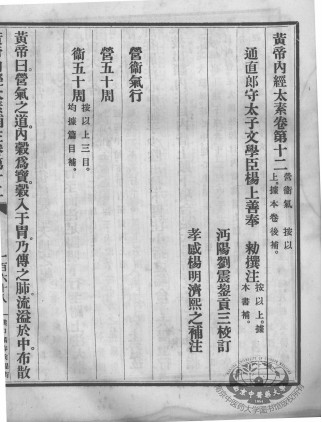 黃帝內經太素卷第十二 營衞氣 按以上據本卷後補。
通直郎守太子文學臣楊上善奉 勅撰注 按以上據本書補。
沔陽劉震鋆貢三校訂
孝感楊明濟熙之補注
營衞氣行
營五十周
衞五十周 按以上三目。均據篇目補。
黃帝曰。營氣之道。內穀爲寶。穀入于胃。乃傳之肺。流溢於中。布散